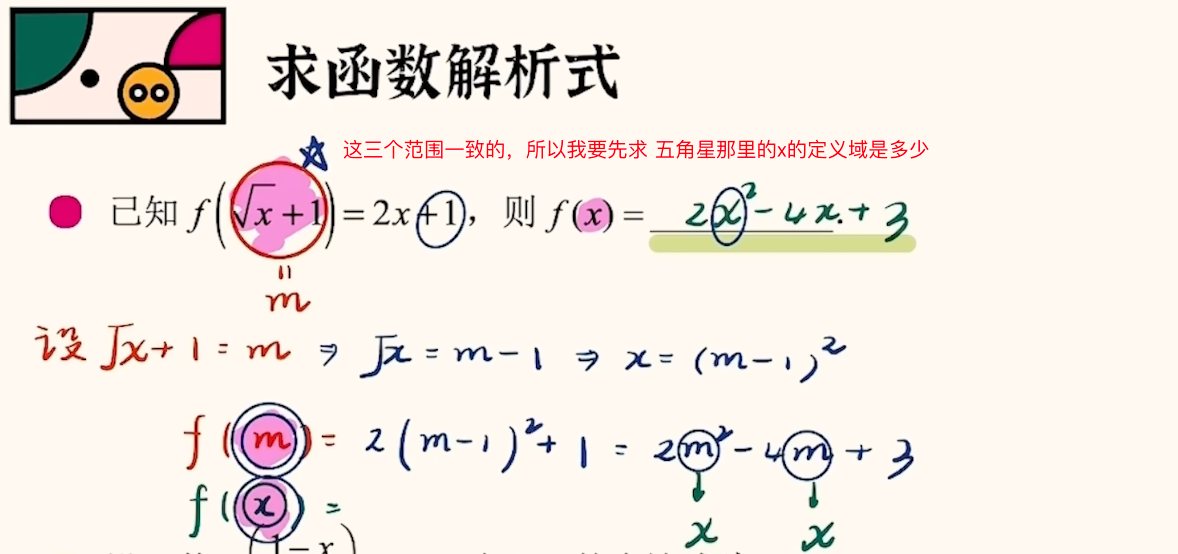 求函数解析式
这三个范围一致的，所以我要先求 五角星那里的x的定义域是多少
已知 f(√x+1)=2x+1，则 f(x)= 2x²-4x.+3
=
m
设 √x+1=m ⇒ √x=m-1 ⇒ x=(m-1)²
f(m)= 2(m-1)²+1 = 2m²-4m+3
f(x)= x x
1-x